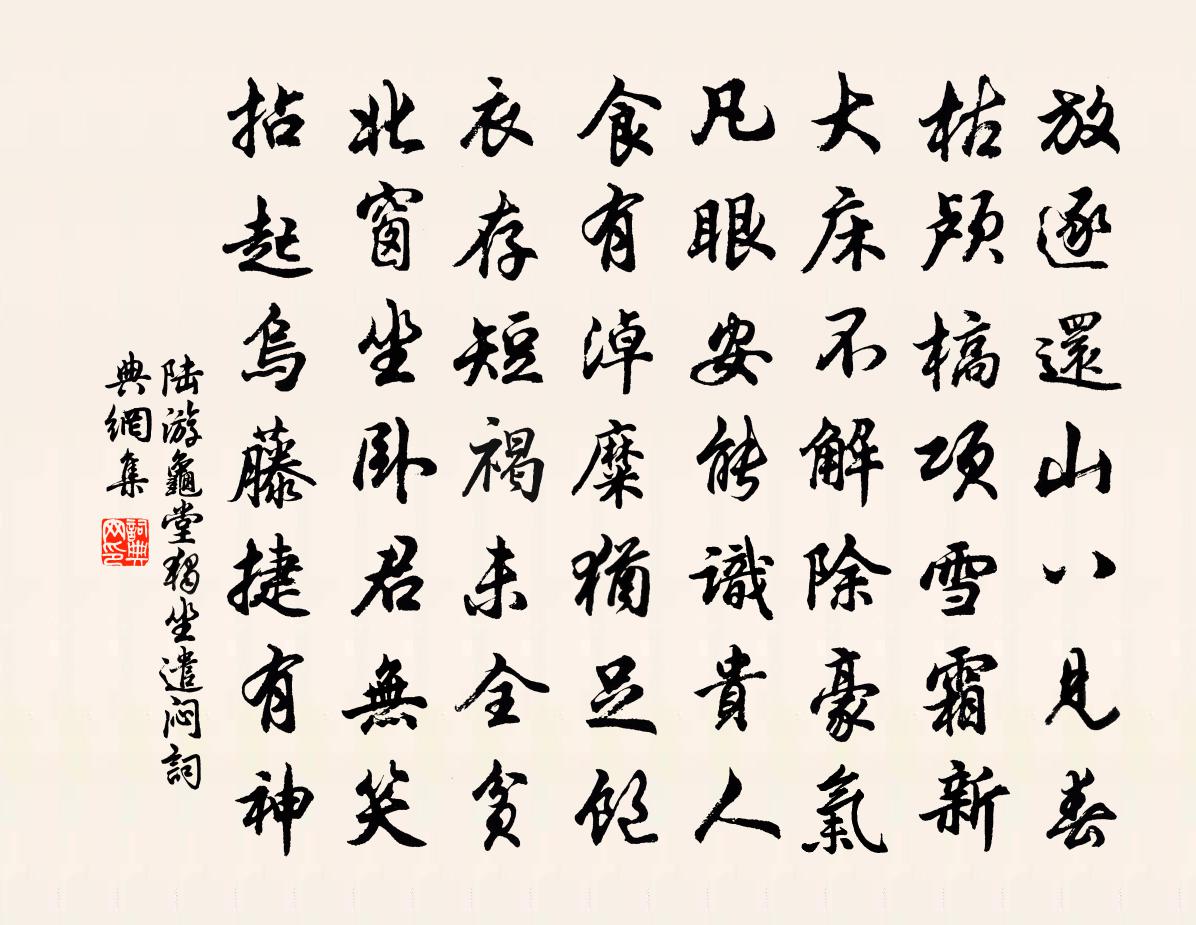 放逐還山八見春
枯顱槁項雪霜新
大床不解除豪氣
凡眼安能識貴人
食有淖糜猶足飽
衣存短褐未全貧
北窗坐臥君無笑
拈起烏藤捷有神
陆游龜堂獨坐遣闷詞
典網集
詞典
网印